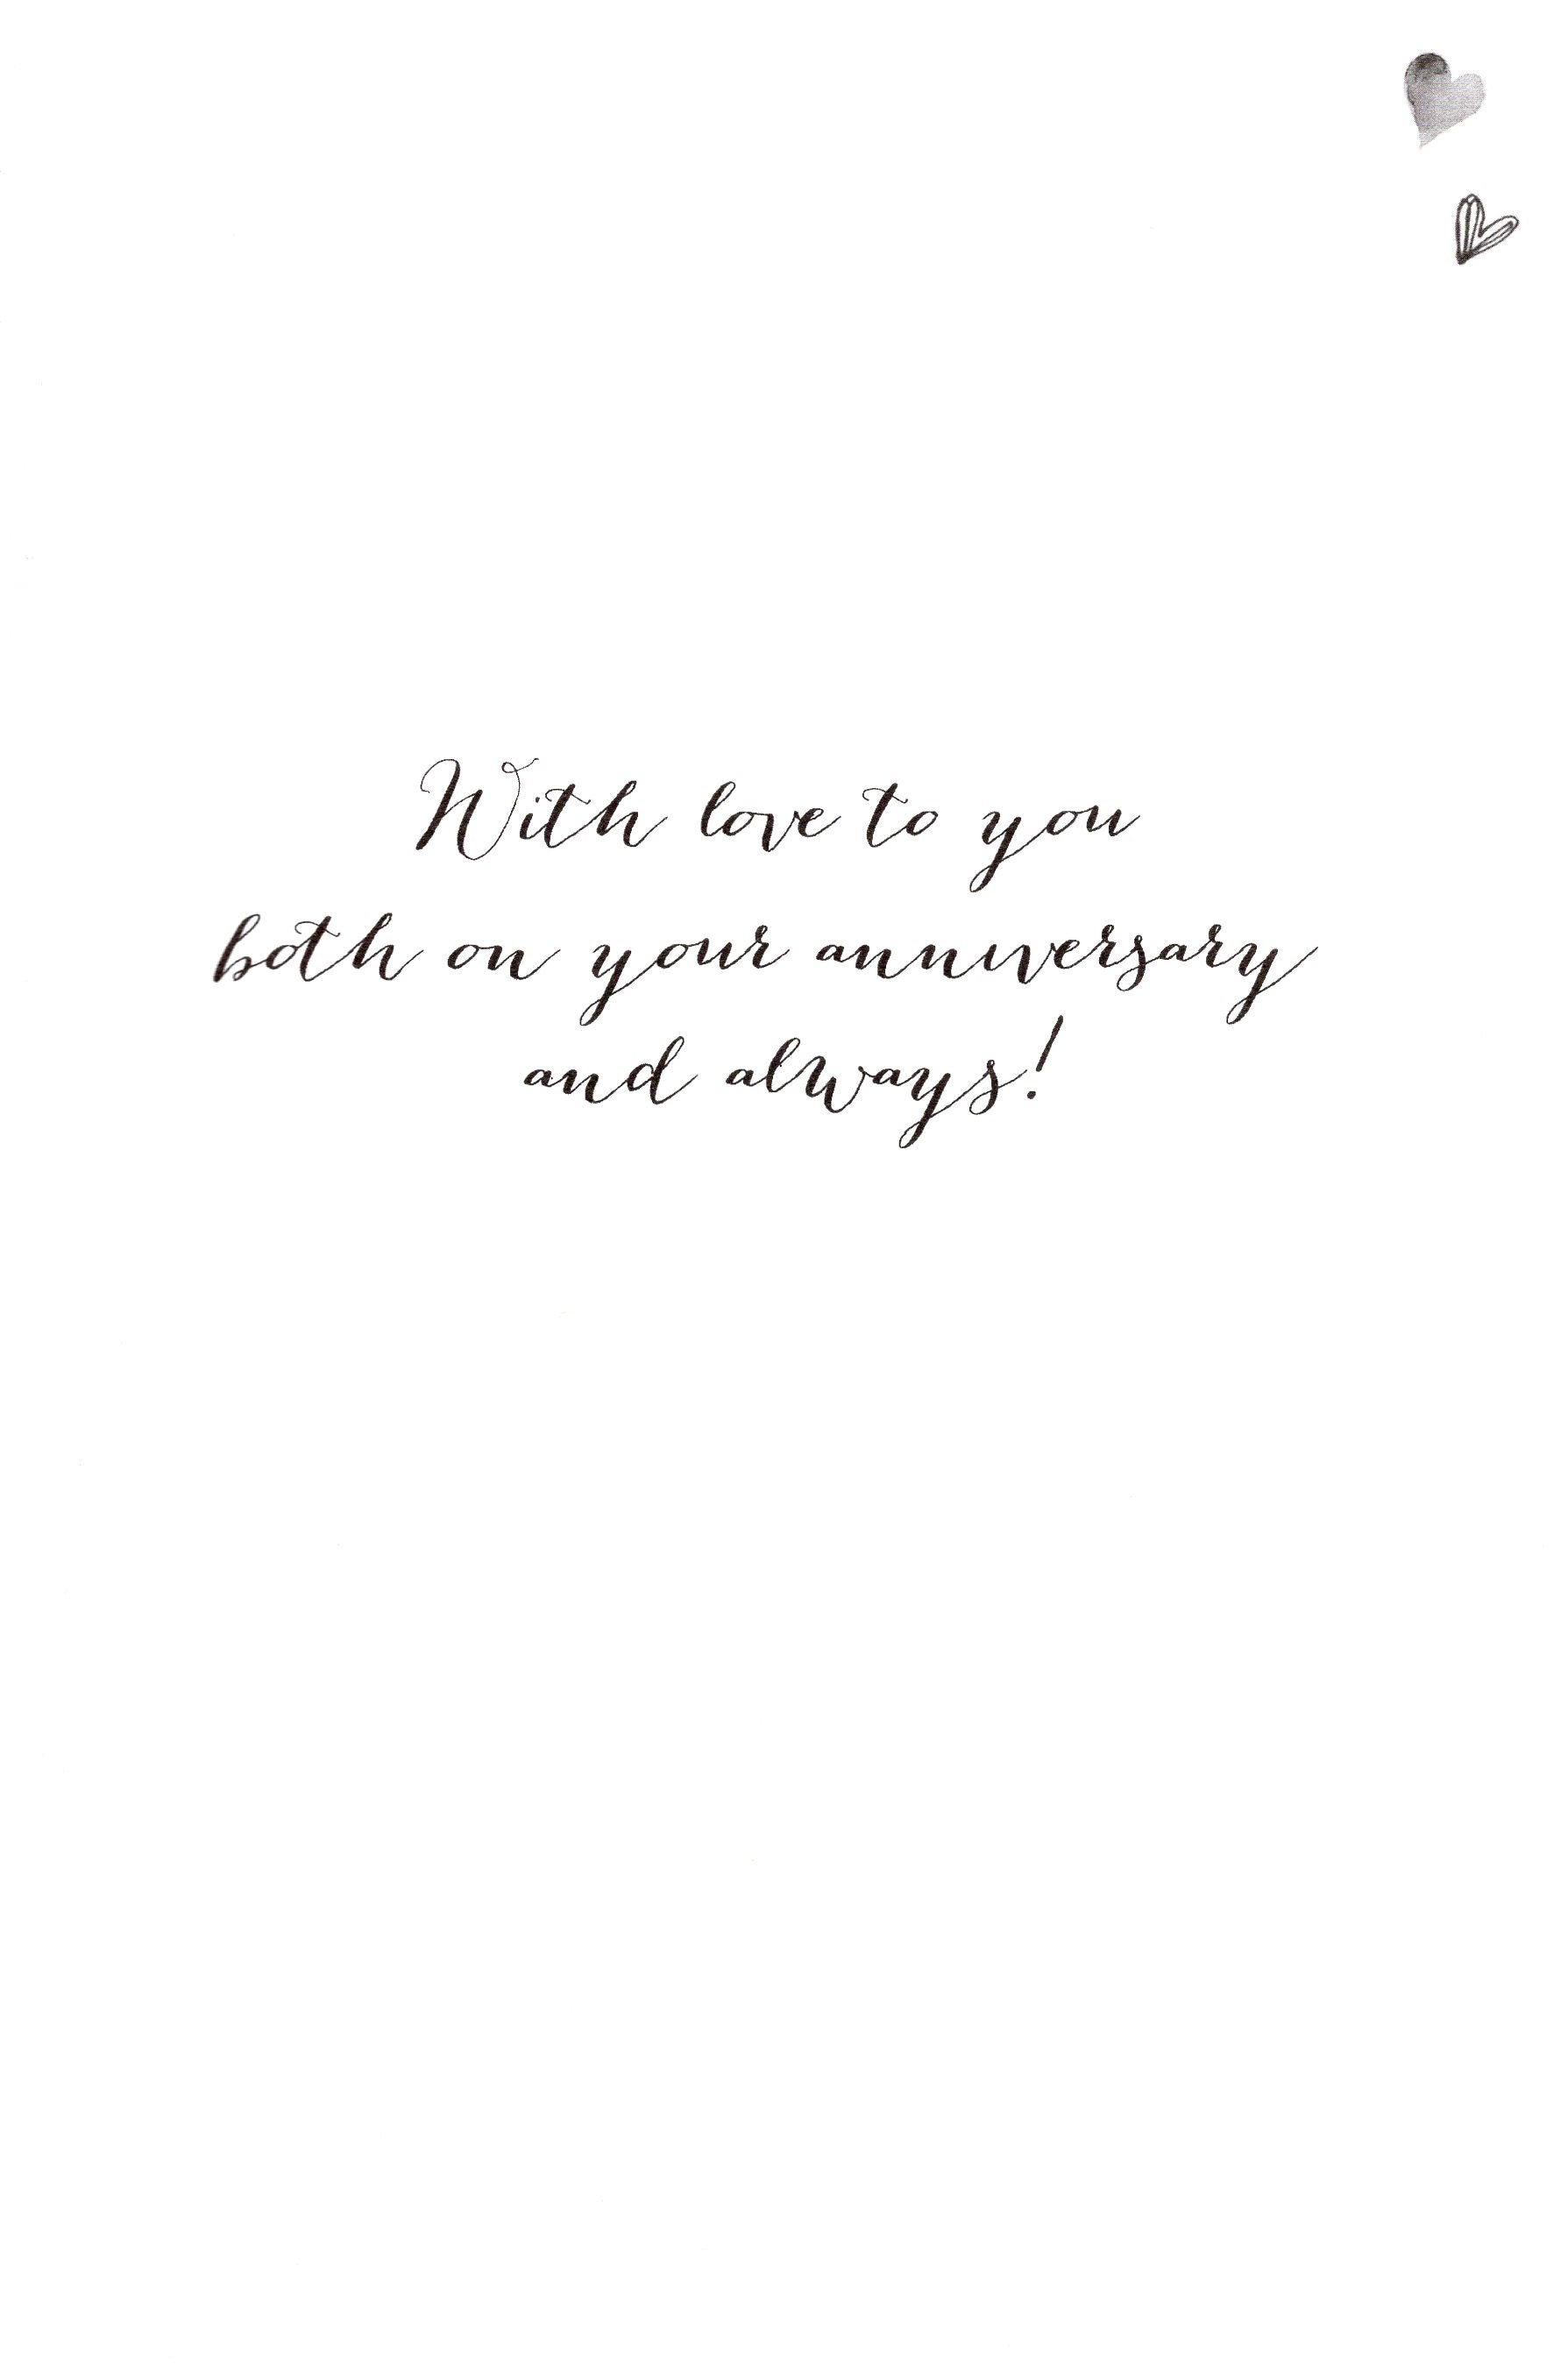 With love to you
both on your anniversary
and always!